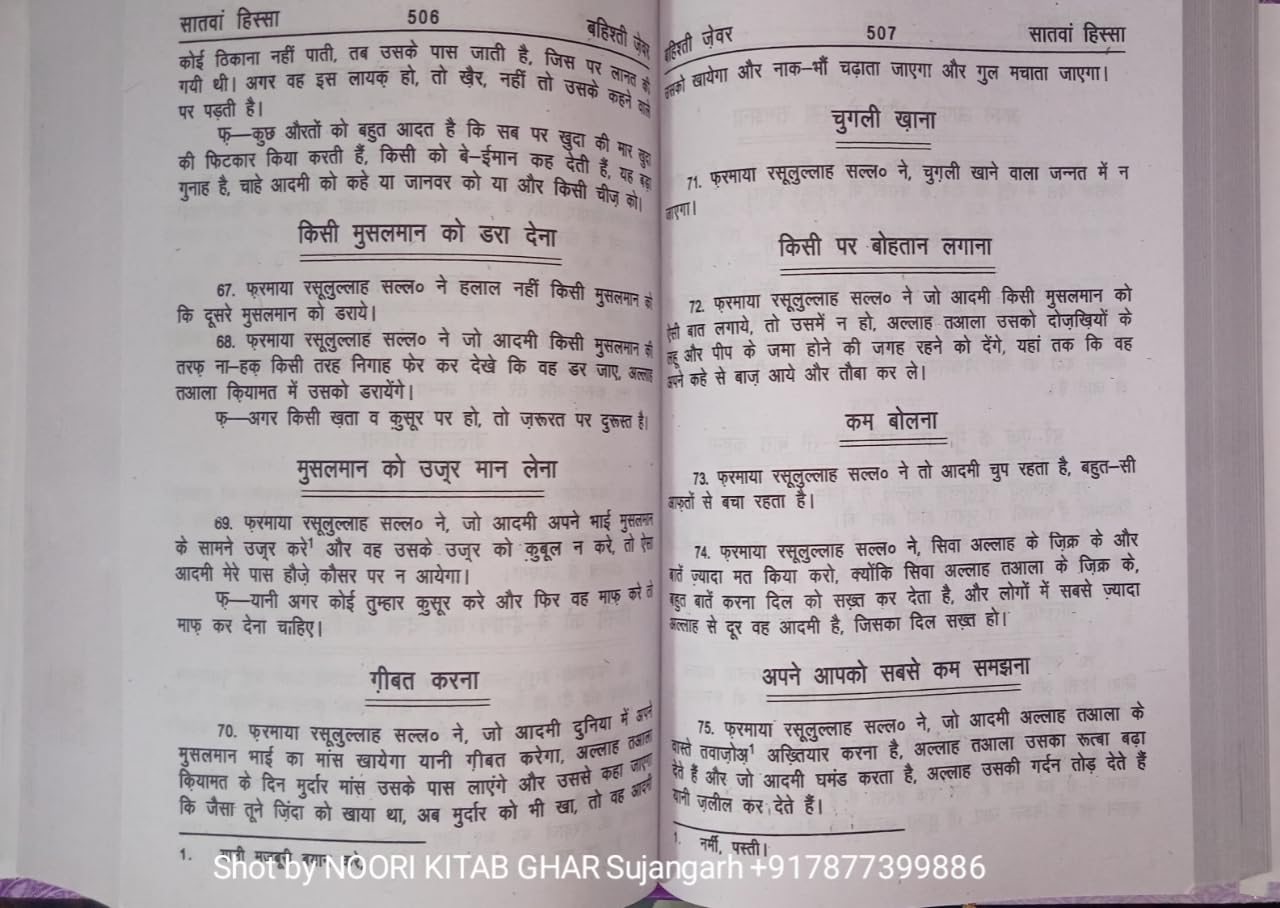 सातवां हिस्सा 506 बहिश्ती ज़ेवर
कोई ठिकाना नहीं पाती, तब उसके पास जाती है, जिस पर लानत की
गयी थी। अगर वह इस लायक़ हो, तो ख़ैर, नहीं तो उसके कहने वाले
पर पड़ती है।
फ़—कुछ औरतों को बहुत आदत है कि सब पर खुदा की मार खुदा
की फिटकार किया करती हैं, किसी को बे-ईमान कह देती हैं, यह बड़ा
गुनाह है, चाहे आदमी को कहे या जानवर को या और किसी चीज़ को।
किसी मुसलमान को डरा देना
67. फ़रमाया रसूलुल्लाह सल्ल० ने हलाल नहीं किसी मुसलमान को
कि दूसरे मुसलमान को डराये।
68. फ़रमाया रसूलुल्लाह सल्ल० ने जो आदमी किसी मुसलमान की
तरफ़ ना-हक़ किसी तरह निगाह फेर कर देखे कि वह डर जाए, अल्लाह
तआला क़ियामत में उसको डरायेंगे।
फ़—अगर किसी ख़ता व क़ुसूर पर हो, तो ज़रूरत पर दुरूस्त है।
मुसलमान को उज़्र मान लेना
69. फ़रमाया रसूलुल्लाह सल्ल० ने, जो आदमी अपने भाई मुसलमान
के सामने उज़्र करे¹ और वह उसके उज़्र को क़ुबूल न करे, तो ऐसा
आदमी मेरे पास हौज़े कौसर पर न आयेगा।
फ़—यानी अगर कोई तुम्हार क़ुसूर करे और फिर वह माफ़ करे तो
माफ़ कर देना चाहिए।
ग़ीबत करना
70. फ़रमाया रसूलुल्लाह सल्ल० ने, जो आदमी दुनिया में अपने
मुसलमान भाई का मांस खायेगा यानी ग़ीबत करेगा, अल्लाह तआला
क़ियामत के दिन मुर्दार मांस उसके पास लाएंगे और उससे कहा जाएगा
कि जैसा तूने ज़िंदा को खाया था, अब मुर्दार को भी खा, तो वह आदमी
1. यानी मजबूरी बयान करे,
बहिश्ती ज़ेवर 507 सातवां हिस्सा
उसको खायेगा और नाक-भौं चढ़ाता जाएगा और गुल मचाता जाएगा।
चुग़ली ख़ाना
71. फ़रमाया रसूलुल्लाह सल्ल० ने, चुग़ली खाने वाला जन्नत में न
जाएगा।
किसी पर बोहतान लगाना
72. फ़रमाया रसूलुल्लाह सल्ल० ने जो आदमी किसी मुसलमान को
ऐसी बात लगाये, तो उसमें न हो, अल्लाह तआला उसको दोज़ख़ियों के
लहू और पीप के जमा होने की जगह रहने को देंगे, यहां तक कि वह
अपने कहे से बाज़ आये और तौबा कर ले।
कम बोलना
73. फ़रमाया रसूलुल्लाह सल्ल० ने तो आदमी चुप रहता है, बहुत-सी
आफ़तों से बचा रहता है।
74. फ़रमाया रसूलुल्लाह सल्ल० ने, सिवा अल्लाह के ज़िक्र के और
बातें ज़्यादा मत किया करो, क्योंकि सिवा अल्लाह तआला के ज़िक्र के,
बहुत बातें करना दिल को सख़्त कर देता है, और लोगों में सबसे ज़्यादा
अल्लाह से दूर वह आदमी है, जिसका दिल सख़्त हो।
अपने आपको सबसे कम समझना
75. फ़रमाया रसूलुल्लाह सल्ल० ने, जो आदमी अल्लाह तआला के
वास्ते तवाज़ोअ़¹ अख़्तियार करना है, अल्लाह तआला उसका रूत्बा बढ़ा
देते हैं और जो आदमी घमंड करता है, अल्लाह उसकी गर्दन तोड़ देते हैं
यानी ज़लील कर देते हैं।
1. नर्मी, पस्ती।
Shot by NOORI KITAB GHAR Sujangarh +917877399886